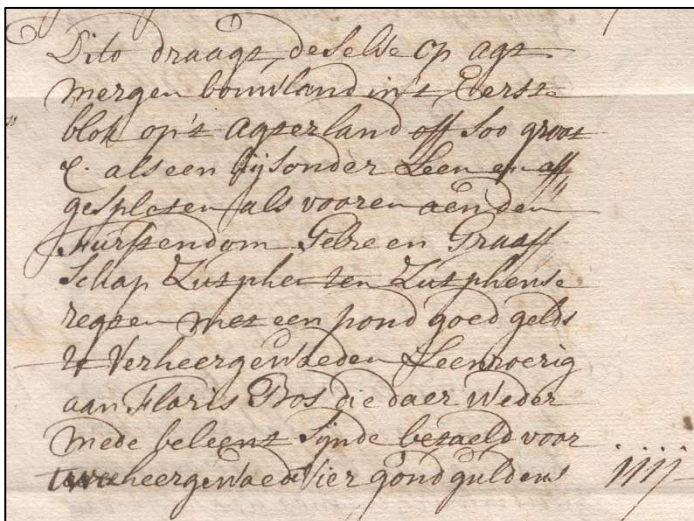 Dito draagt deselve op agt
mergen bouwland in't Eerste
blok op't agterland off soo groot
&. als een bijsonder Leen en aff
gespleten als vooren aen den
Furstendom Gelre en Graaff
Schap Zutphen ten Zutphense
regten met een pond goed gelds
te Verheergewaeden Leenroerig
aan Floris Bos die daer Weder
mede beleent Sijnde betaeld voor
heergewaede Vier goudguldens iiij